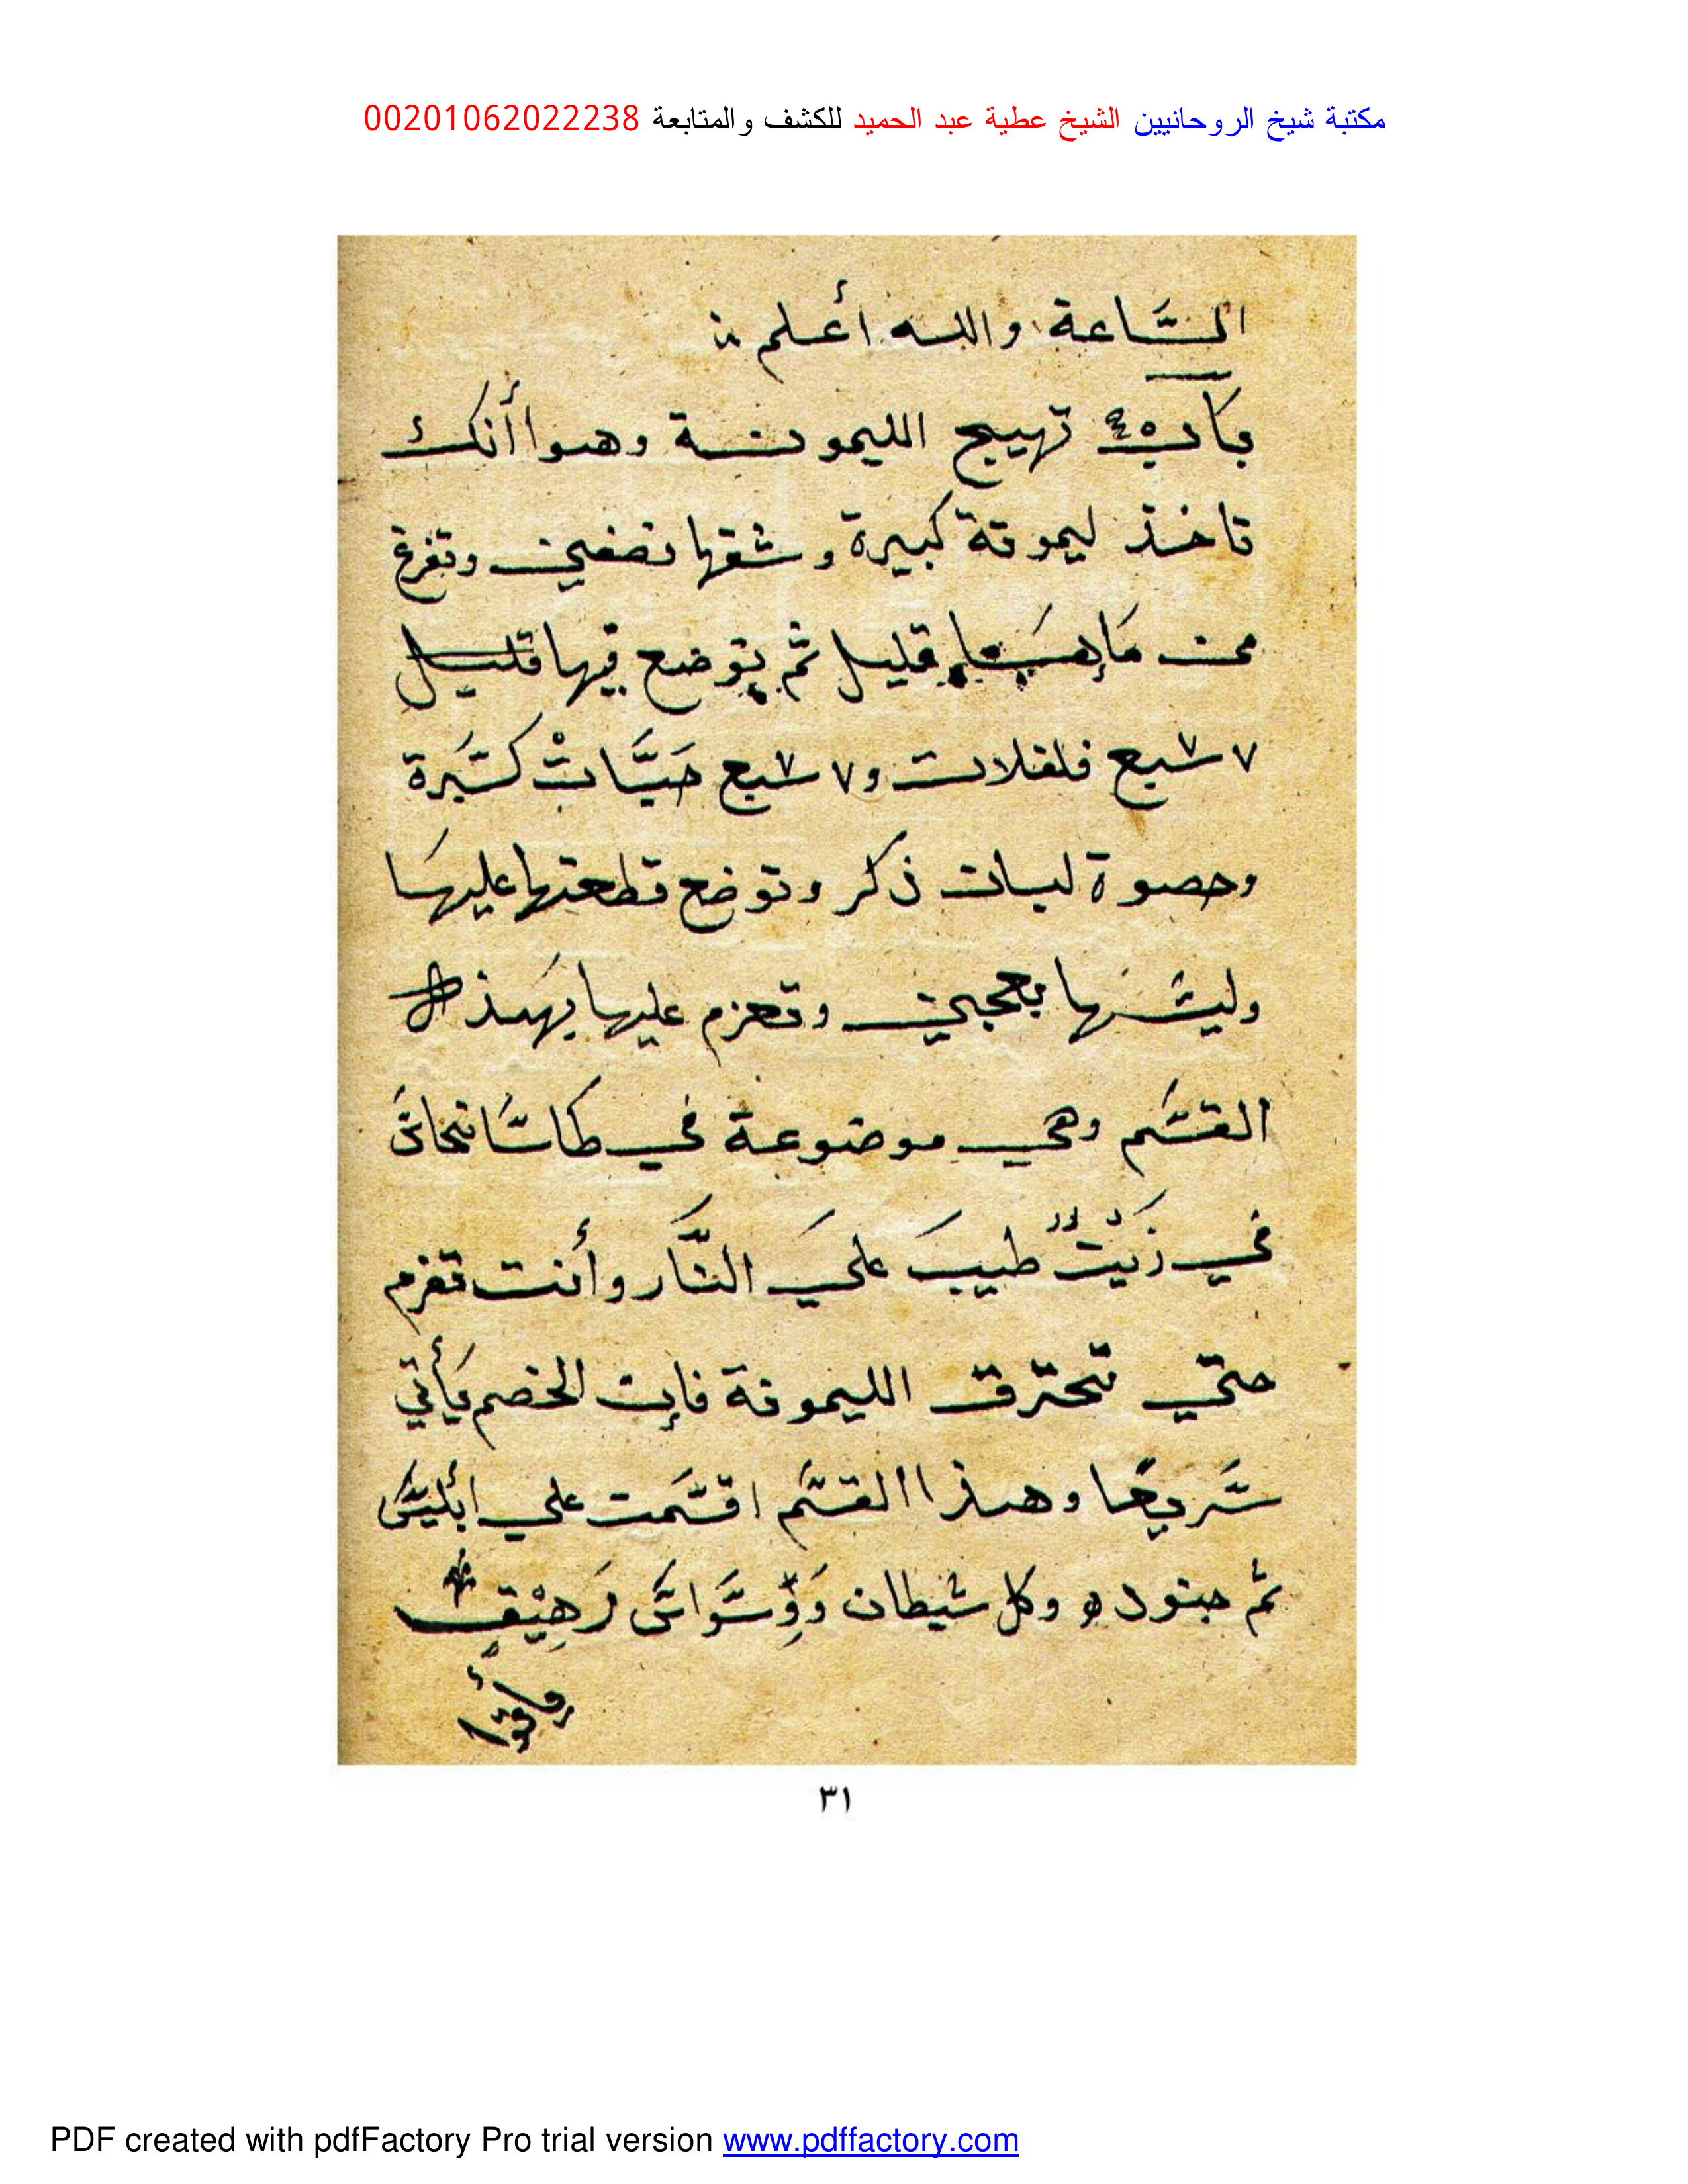 مكتبة شيخ الروحانيين الشيخ عطية عبد الحميد للكشف والمتابعة 00201062022238
السَّاعة والله أعلم
باب تهييج الليمونة وهوا أنك
تاخذ ليمونة كبيرة وشقها نصفين وتفرغ
من قليل ثم يتوضع فيها قليل
٧ سبع فلفلات و٧ سبع حَبَّاتْ كسَّبرة
وحصوة لبان ذكر وتوضع قطعتها عليهَا
وليسها بعجين وتعزم عليها بهذه
القسَم وهي موضوعة في طاسَا نحاس
في زَيْتٌ طيبَ عليَ النَّار وأنت تعزم
حتي تحترق الليمونة فإن الخصم يأتي
سَريعًا وهذا القسَم اقسَمت علي ابليسَ
ثم جنوده وكل شيطان وَوِسَّوَاسَ رَهِيْقٍ
٣١
PDF created with pdfFactory Pro trial version www.pdffactory.com